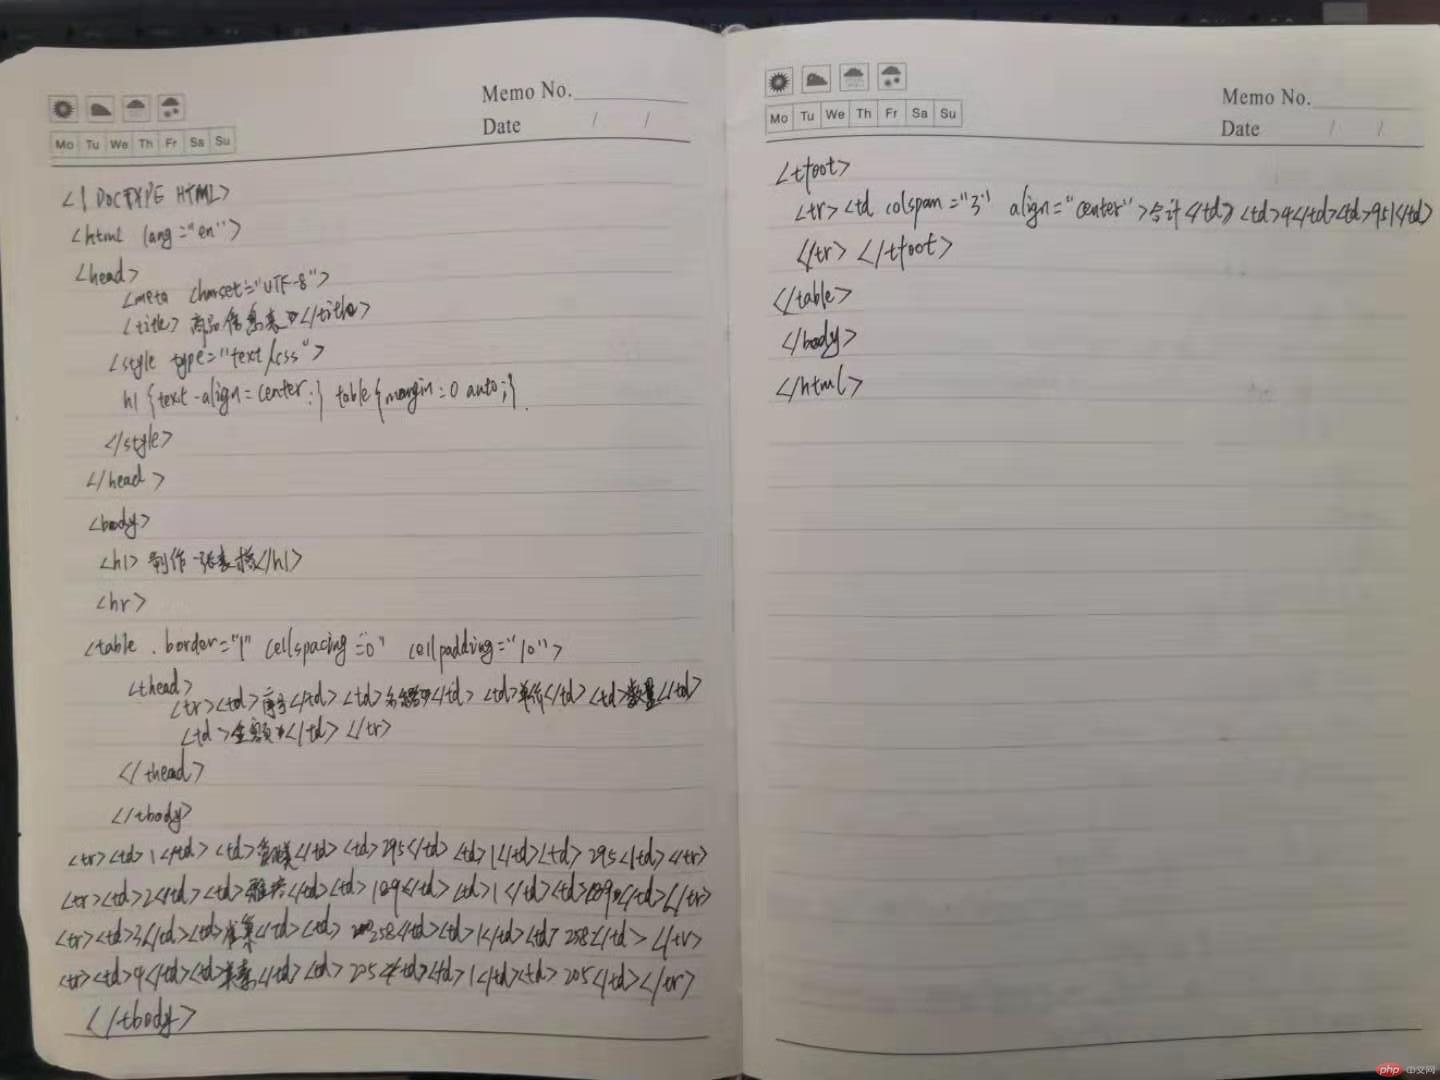 Memo No.
Date / /
Mo Tu We Th Fr Sa Su
<! DOCTYPE HTML>
<html lang="en">
<head>
<meta charset="UTF-8">
<title>商品信息表</title>
<style type="text/css">
h1{text-align=center;} table{margin:0 auto;}
</style>
</head>
<body>
<h1>制作一张表格</h1>
<hr>
<table border="1" cellspacing="0" cellpadding="10">
<thead>
<tr><td>序号</td><td>名称</td><td>单价</td><td>数量</td>
<td>金额</td></tr>
</thead>
</tbody>
<tr><td>1</td><td></td><td>295</td><td>1</td><td>295</td></tr>
<tr><td>2</td><td></td><td>189</td><td>1</td><td>189</td></tr>
<tr><td>3</td><td></td><td>258</td><td>1</td><td>258</td></tr>
<tr><td>4</td><td></td><td>205</td><td>1</td><td>205</td></tr>
</tbody>
Memo No.
Date / /
Mo Tu We Th Fr Sa Su
<tfoot>
<tr><td colspan="3" align="center">合计</td><td>4</td><td>951</td>
</tr></tfoot>
</table>
</body>
</html>
php 中文网